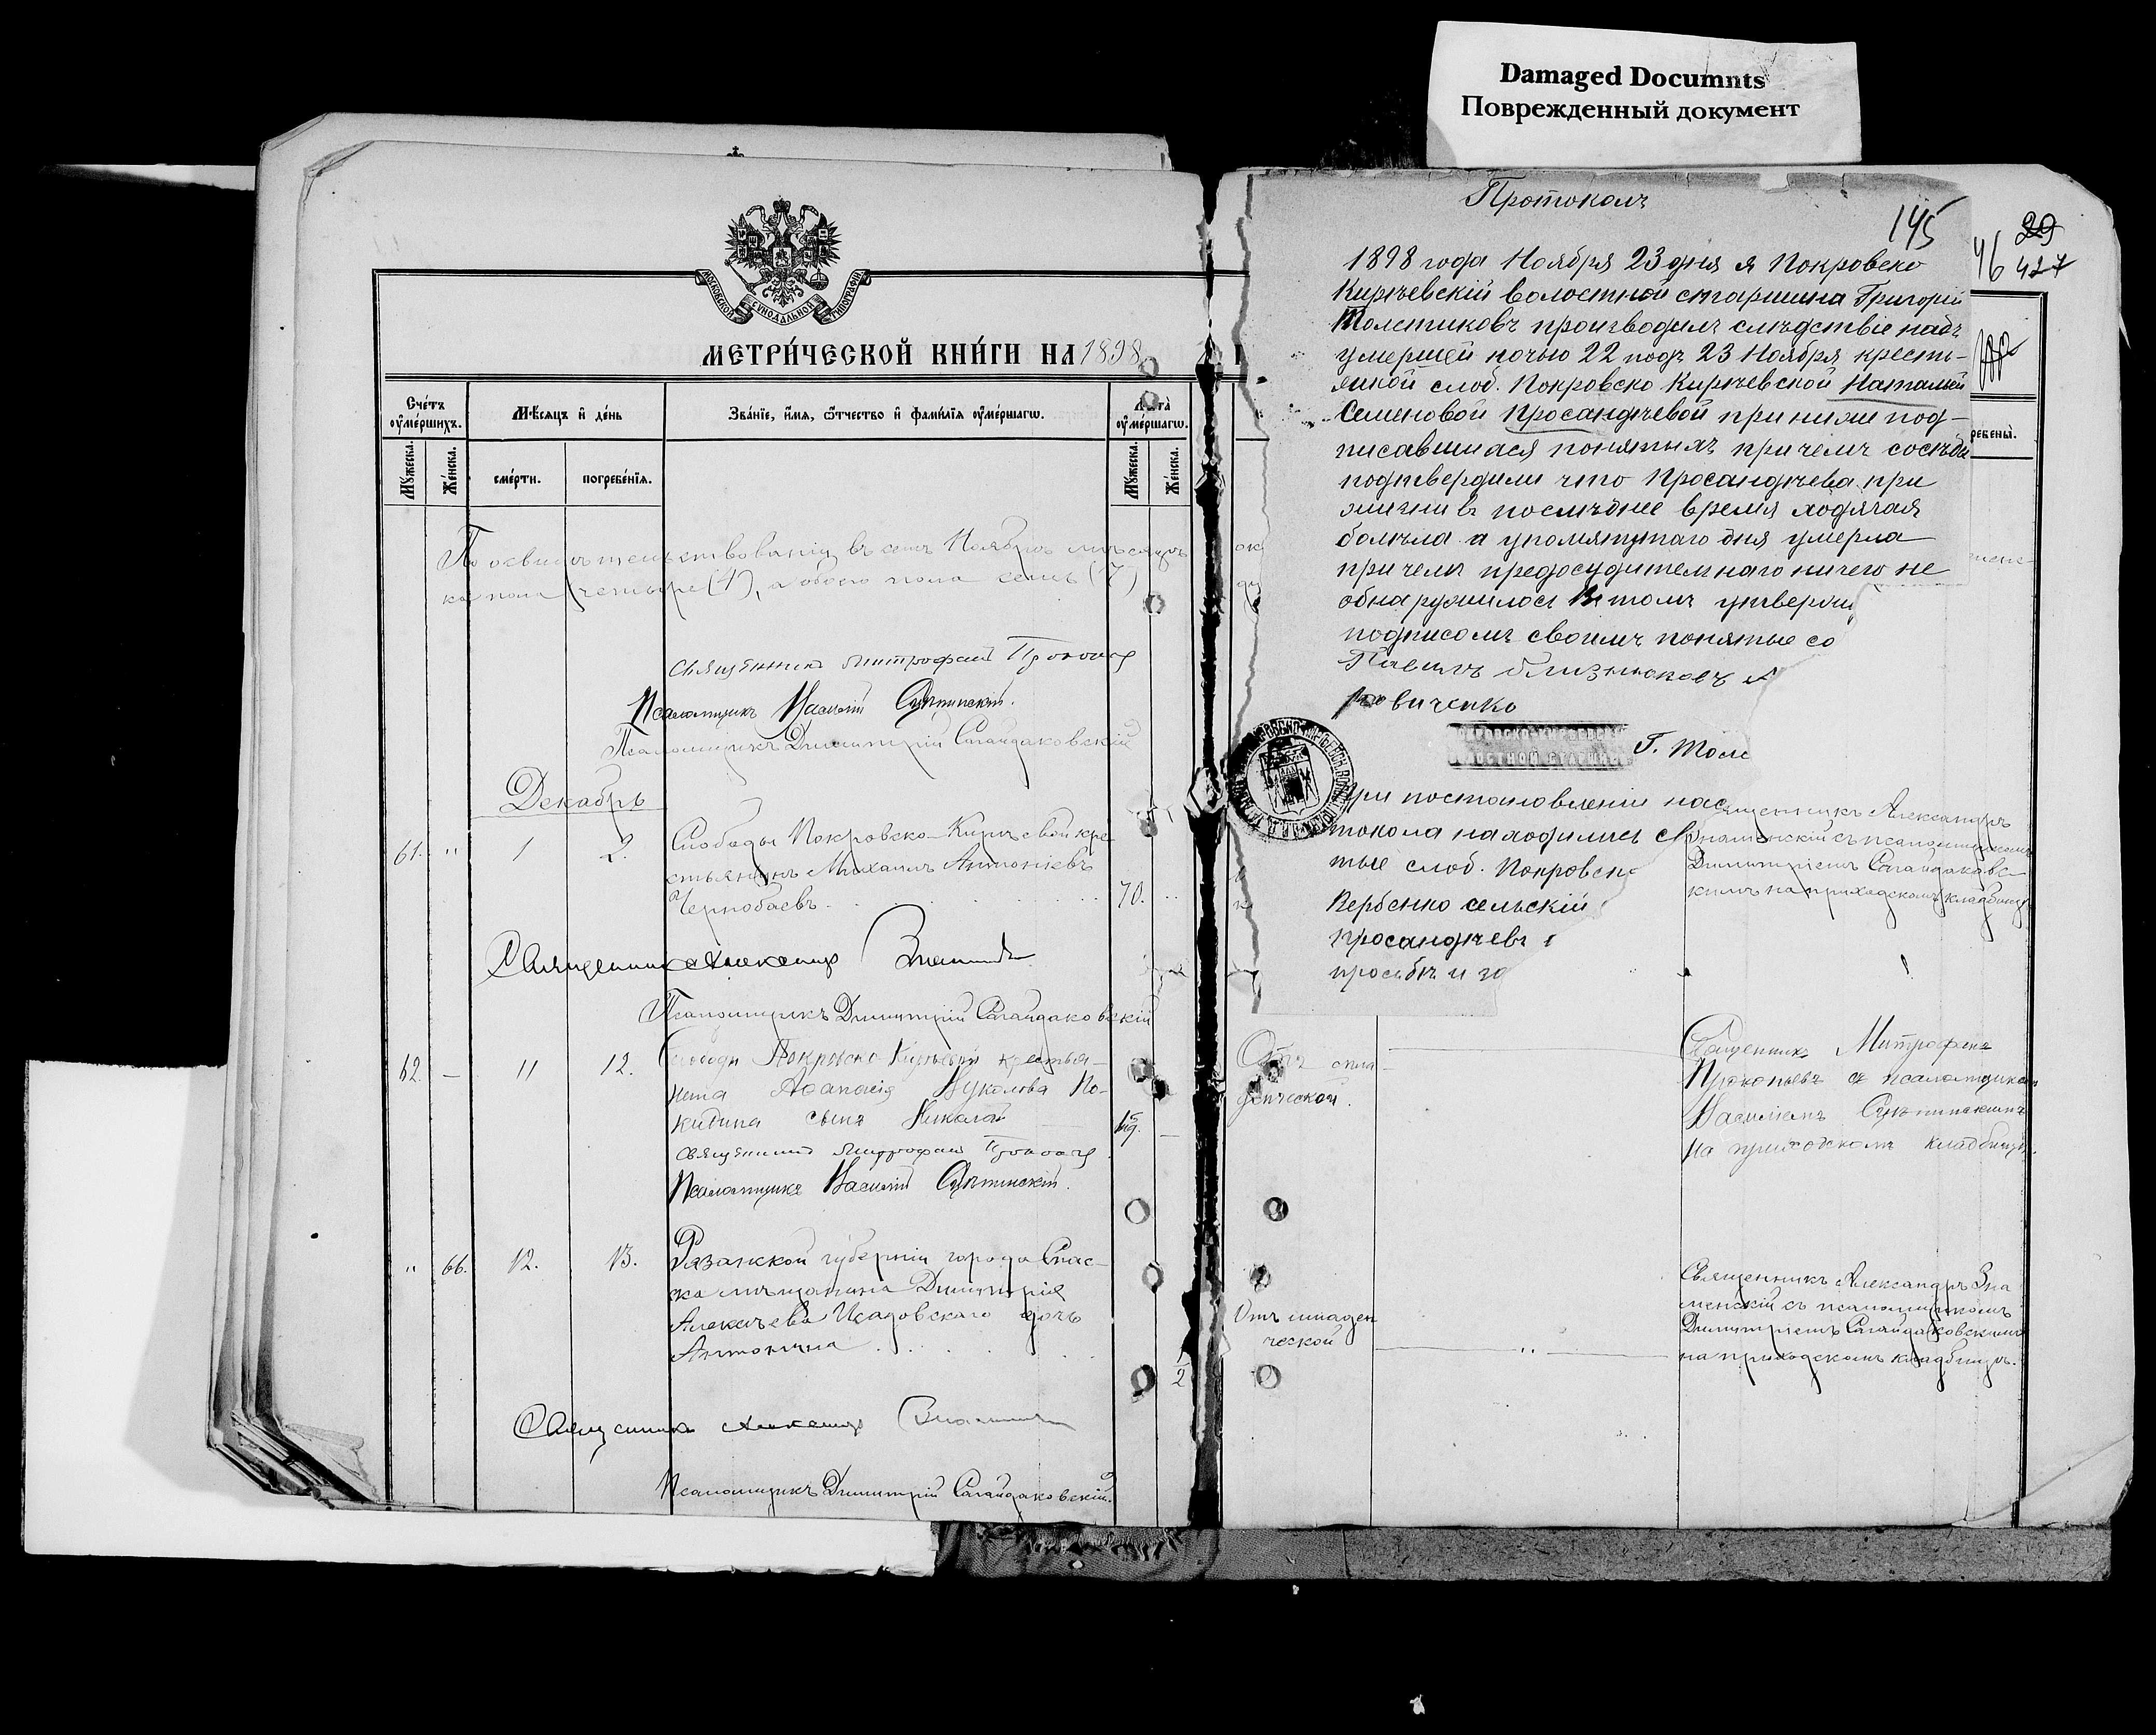 Damaged Documnts
Поврежденный документ
МОСКОВСКОЙ СѴНОДАЛЬНОЙ ТИПОГРАФІИ
МЕТРИ́ЧЕСКОЙ КНИ́ГИ НА 1898
Сче́тъ ᲂумершихъ.
Мѣсяцъ и день
Зва́нїе, и́мя, ѻ҆́тчество и҆ фамилїя ᲂумершагѡ.
Лѣта ᲂумершагѡ.
Мꙋжеска.
Же́нска.
сме́рти.
погребе́нїя.
Мꙋжеска.
Же́нска.
По освидѣтельствованіи въ семъ Ноябрѣ мѣсяцѣ
ка пола четыре (4), а обоего пола семь (7)
Священникъ Митрофанъ
Псаломщикъ Василій
Псаломщикъ Димитрій Сагайдаковскій
Декабрь
61. " 1 2. Слободы Покровско-Кирѣевой кре
стьянинъ Михаилъ Антоніевъ
Чернобаевъ 70.
Священникъ Александръ
Псаломщикъ Димитрій Сагайдаковскій
62. — 11 12. Слободы Покровско-Кирѣевой крестья-
нина Аѳанасія Нуколова По-
кидина сынъ Николай
Священникъ Митрофанъ
Псаломщикъ Василій
" 66. 12. 13. Рязанской губерніи города Спас-
ка мѣщанина Димитрія
Алексѣева Исадовскаго дочь
Антонина
2
Священникъ Александръ
Псаломщикъ Димитрій Сагайдаковскій.
Протоколъ
145
29
46 427
1898 года Ноября 23 дня я Покровско
Кирѣевскій волостной старшина Григорій
Толстиковъ производилъ слѣдствіе надъ
умершей ночью 22 подъ 23 Ноября кресть-
янкой слоб. Покровско Кирѣевской Наталіей
Семеновой Просандѣевой при ниже под-
писавшихся понятыхъ при чемъ сосѣди
подтвердили что Просандѣева при
жизни въ послѣднее время ходячая
болѣла а упомянутаго дня умерла
при чемъ предосудительнаго ничего не
обнаружилось Въ томъ утверж
подписомъ своимъ понятые со
Павелъ Близнюковъ
виченко
ПОКРОВСКО-КИРѢЕВСК
ВОЛОСТНОЙ СТАРШИНА
Г. Толс
При постановленіи нас
токола находились
тые слоб. Покровск
Вербенко сельскій
Просандѣевъ
просьбѣ и
ребены̀.
Священникъ Александръ
Знаменскій съ псаломщикомъ
Димитріемъ Сагайдаковс-
кимъ на приходскомъ кладбищѣ
Священникъ Митрофанъ
Прокопьевъ съ псаломщикомъ
Василіемъ
на приходскомъ кладбищѣ.
Отъ младен
ческой
Священникъ Александръ Зна
менскій съ псаломщикомъ
Димитріемъ Сагайдаковскимъ
на приходскомъ кладбищѣ.